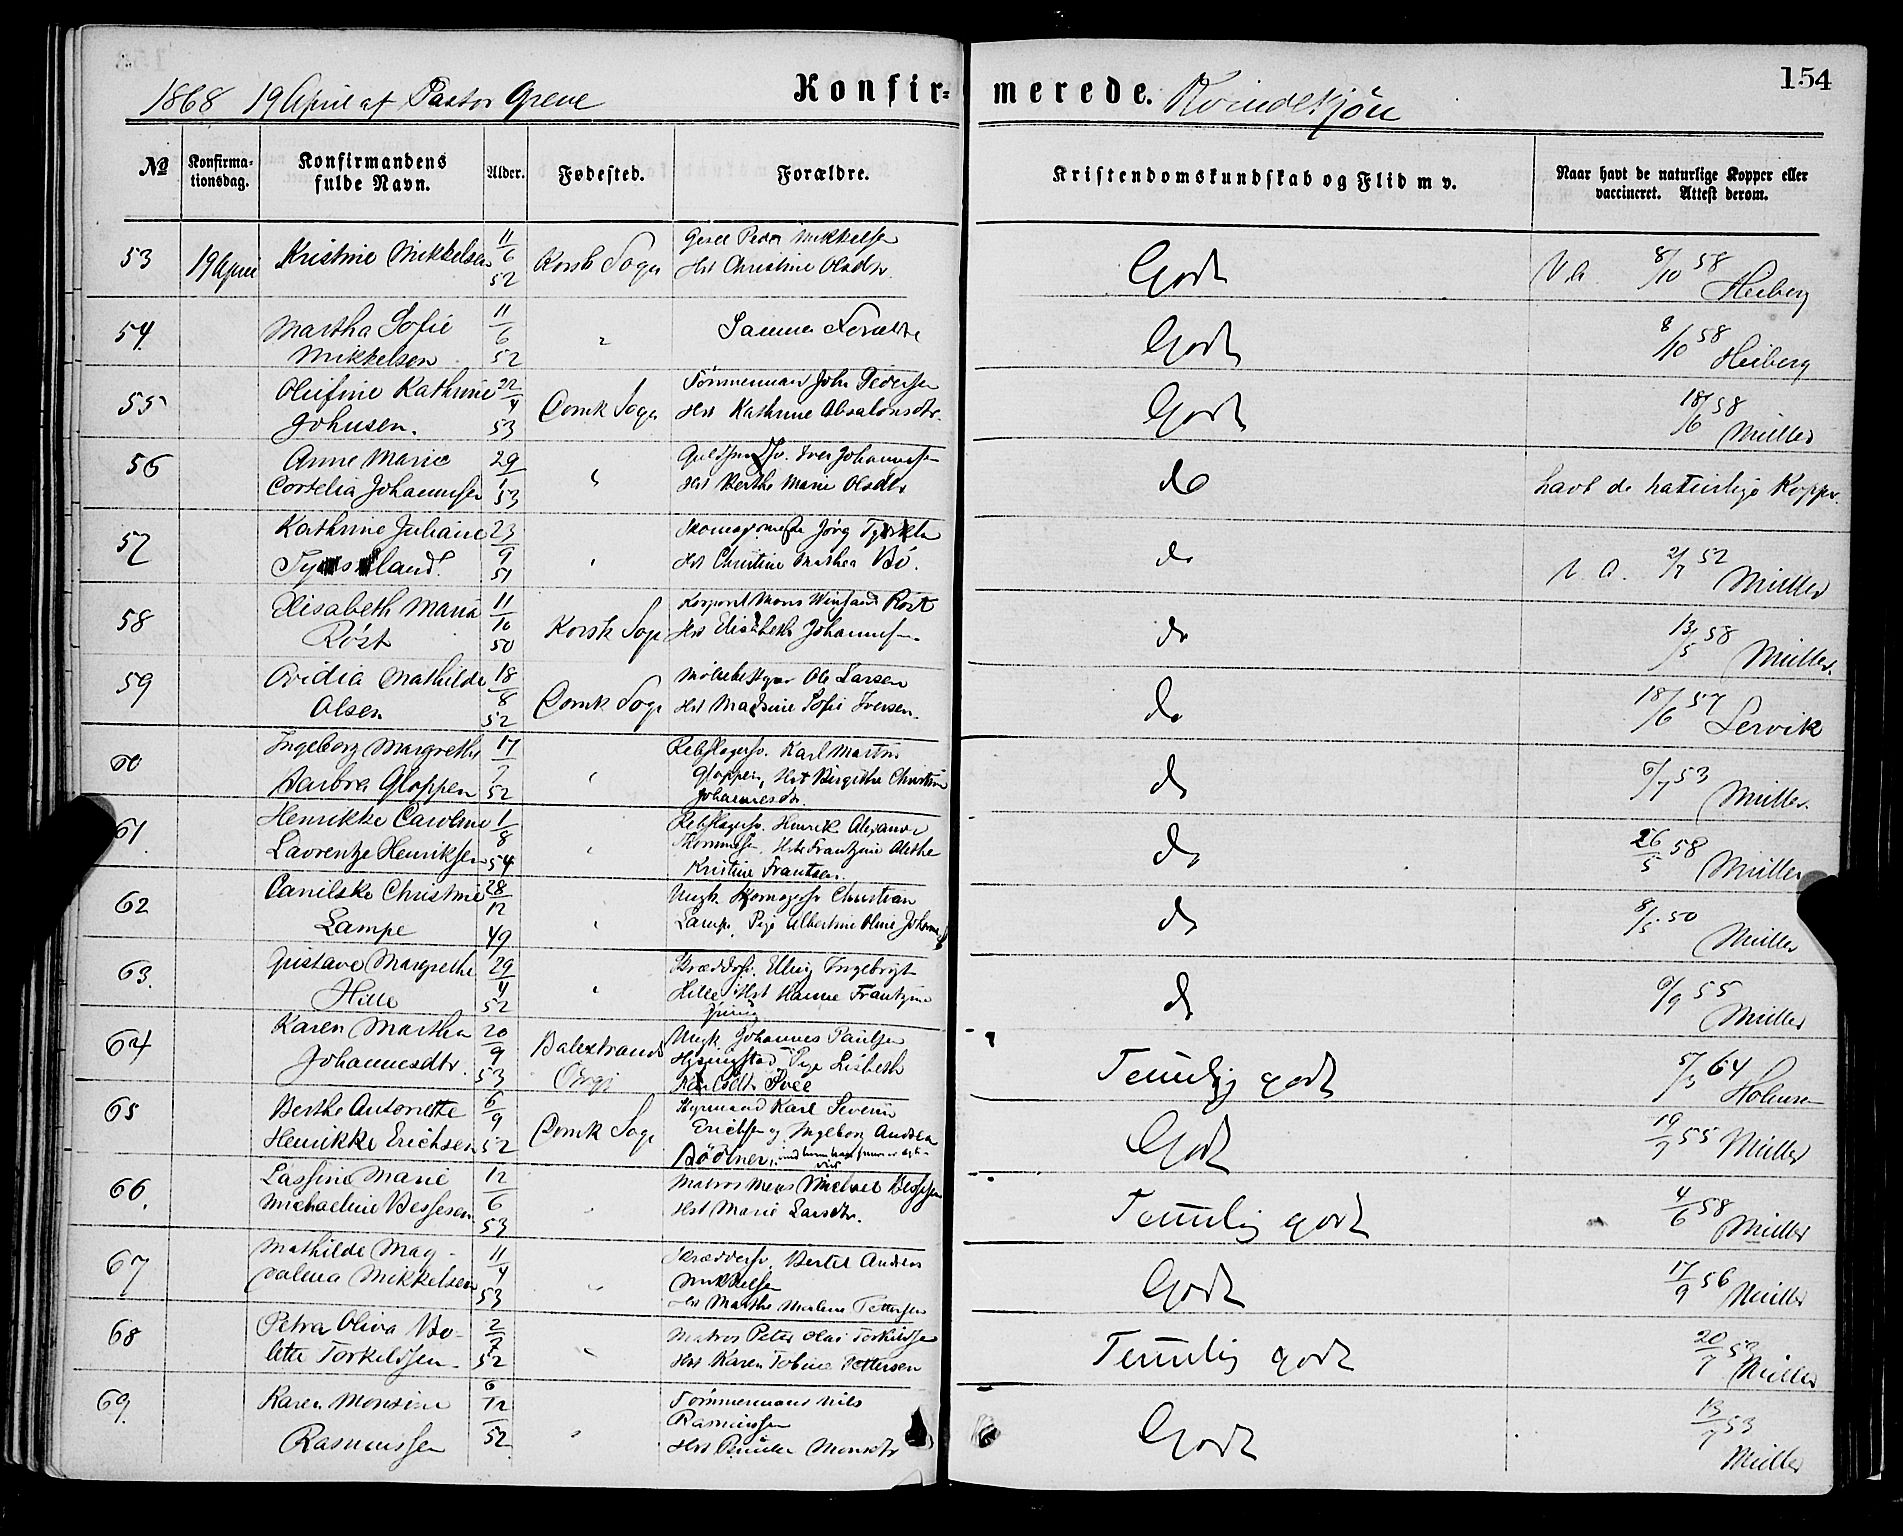 154
1868 19 April af Pastor Greve Konfirmerede. Kvindekjøn
№ Konfirmationsdag. Konfirmandens fulde Navn. Alder. Fødested. Forældre. Kristendomskundskab og Flid m v. Naar havt de naturlige Kopper eller vaccineret. Attest derom.
53 19 April Kristine Mikkelsen 11/6 52 Korsk Sogn Peder Mikkelsen Hst Christine Olsdtr. Godt V. A. 8/10 58 Heiberg
54. Martha Sofie Mikkelsen 11/6 52 " Samme Forældre Godt 8/10 58 Heiberg
55 Olufine Kathrine Johnsen. 22/4 53 Domk Sogn Tømmermand John Pedersen Hst Kathrine Absalonsdtr. Godt 18/6 58 Müller
56 Anne Marie Johannesen 29/1 53 " Iver Johannesen Hst Berthe Marie Olsdtr do havt de naturlige Kopper.
57 Kathrine Juliane 23/9 51 " Jørg Hst Christine Mathea Bö. do V. A. 2/7 52 Müller
58 Elisabeth Maria Röst 11/10 50 Korsk Sogn Mons Röst Hst Elisabeth Johannesen do 13/5 58 Müller.
59 Ovidia Mathilde Olsen 18/8 52 Domk Sogn Ole Larsen Hst Madsine Sofie Iversen. do 18/6 57 Lervik
60 Ingeborg Margrethe Barbra Gloppen 52 " Karl Martin Gloppen, Hst Birgithe Christine Johannesdtr do 6/7 53 Müller.
61. Henrikke Caroline Lavrentze Henriksen 1/8 54 " Henrik Alexander Hst Frantzine Alethe Kristine Frantsen. do 26/5 58 Müller
62 Christine Lampe 28/12 49 " Ungk. Christian Lampe, Pige Albertine Oline do 8/5 50 Müller
63. Gustava Margrethe Hille 29/4 52 " Elling Ingebrigt Hille Hst Hanne Frantzine do 6/9 55 Müller
64 Karen Martha Johannesdtr. 20/9 53 Balestrand Ungk Johannes Paulsen Pige Lisbeth Temmelig godt 5/3 64
65 Berthe Antonette Henrikke Erichsen 6/9 52 Domk Sogn Styrmand Karl Severin Erichsen og Ingeborg Andrea Bödtner, Godt 19/7 55 Müller
66. Lassine Marie Michaeline Bessesen 12/6 53 " Matros Mons Michael Bessesen Hst Marie Larsdtr. Temmelig godt 4/6 58 Müller
67 Mathilde Magdalena Mikkelsen 11/4 53 " Bertel Andreas Mikkelsen Hst Marthe Merlene Pettersen Godt 17/9 56 Müller
68 Petra Oliva Bolette Torkildsen. 2/7 52 " Matros Peter Olai Torkildsen Hst Karen Tobine Pettersen Temmelig godt 20/7 53 Müller
69. Karen Monsine Rasmussen 6/12 52 " Tømmermand Nils Rasmussen Hst Monsdtr Godt 13/7 53 Müller